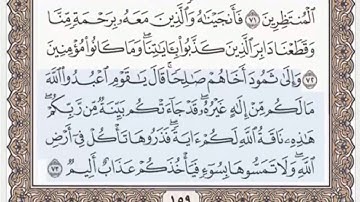 ٱلْمُنتَظِرِينَ ۝٧١ فَأَنجَيْنَٰهُ وَٱلَّذِينَ مَعَهُۥ بِرَحْمَةٍ مِّنَّا
وَقَطَعْنَا دَابِرَ ٱلَّذِينَ كَذَّبُوا۟ بِـَٔايَٰتِنَا ۖ وَمَا كَانُوا۟ مُؤْمِنِينَ
۝٧٢ وَإِلَىٰ ثَمُودَ أَخَاهُمْ صَٰلِحًا ۗ قَالَ يَٰقَوْمِ ٱعْبُدُوا۟ ٱللَّهَ
مَا لَكُم مِّنْ إِلَٰهٍ غَيْرُهُۥ ۖ قَدْ جَآءَتْكُم بَيِّنَةٌ مِّن رَّبِّكُمْ ۖ
هَٰذِهِۦ نَاقَةُ ٱللَّهِ لَكُمْ ءَايَةً ۖ فَذَرُوهَا تَأْكُلْ فِىٓ أَرْضِ
ٱللَّهِ ۖ وَلَا تَمَسُّوهَا بِسُوٓءٍ فَيَأْخُذَكُمْ عَذَابٌ أَلِيمٌ ۝٧٣
١٥٩